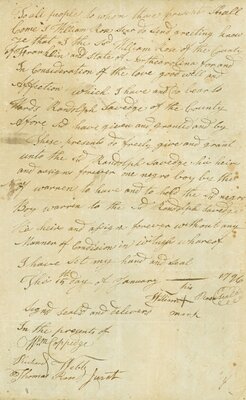 To all people to whom these presents Shall
Come I William Rose Senr do Send greeting know
ye that I the Sd William Rose of the County
of Franklin and State of Northcarolina for and
In Consideration of the love good will and
Affection which I have and do bear to
wards Randolph Savedge of the County
Afore Sd have given and granted and by
these presents do freely give and grant
unto the Sd Randolph Savedge his heirs
and assigns forever one negro boy by the
warren to have and to hold the Sd negro
Boy warren to the Sd Randolph Savedge
his heirs and assigns forever without any
Manner of Condition in witness whereof
I have Set my hand and Seal
This 15th day of January 1796
his
William + Rose Seal
mark
Signd Seald and delivered
In the presents of
Wm Coppedge
Richard Webb
Thomas Rose Jurat